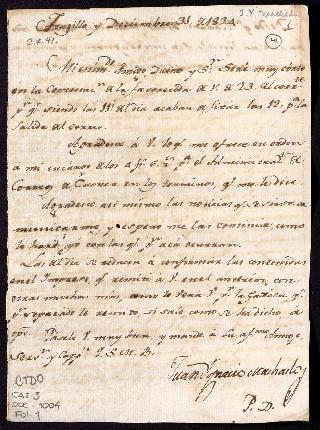 Truxillo y Diciembre 31, de 1824.
J. Y. Machado
1
2.K.41.
Mi estim.º Amigo Dueño y S.or Seré muy corto
en la Contestac.n a la favorecida de V. de 23. del corr.te
p.r q.e siendo las 11 del dia acaban de fixar las 12, p.a la
salida del correo.
Agradesco a V. lo q.e me ofrece en orden
a mi encargo a los q.e el Administrad.or de
Correos de Cuenca en los terminos q.e me lo dice.
Agradesco asi mismo las noticias q.e se sirve
comunicarme, y espero me las continúe, como
lo haré yo con las q.e p.r aca ocurran.
Las del dia se reducen a confirmar las contenidas
en el Impreso, q.e remití a V. en el anterior, con
otras muchas mas, como lo verá V. p.r la Gazeta, q.e
le remito si sale, como se ha dicho
Páselo V. muy bien, y mande a su af.mo Amigo,
Serv.or y Capp.n Q. S. M. B.
Juan Ignacio Machado
P. D.
CTDO
CAJ 3
DOC-1004
FOL-1